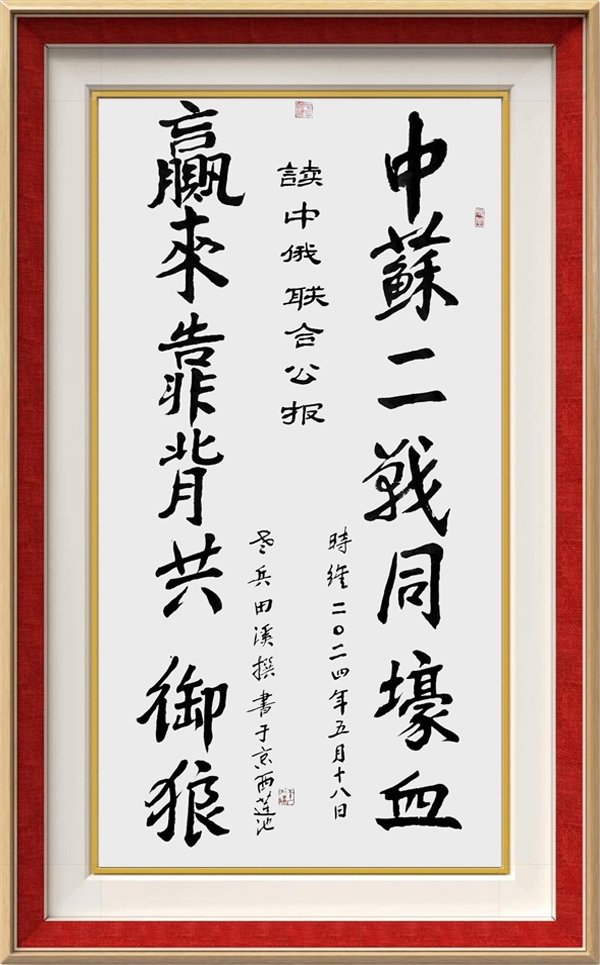 中蘇二戰同壕血
讀中俄联合公报
贏來靠背共御狼
時维二〇二四年五月十八日
老兵田溪撰書于京西莲池